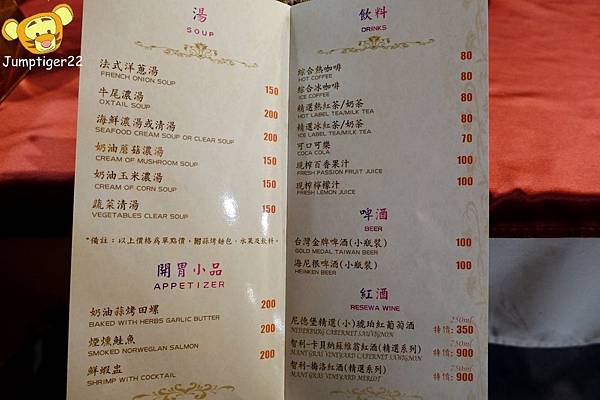 Jumptiger22
湯
SOUP
法式洋蔥湯
FRENCH ONION SOUP 150
牛尾濃湯
OXTAIL SOUP 200
海鮮濃湯或清湯
SEAFOOD CREAM SOUP OR CLEAR SOUP 200
奶油蘑菇濃湯
CREAM OF MUSHROOM SOUP 150
奶油玉米濃湯
CREAM OF CORN SOUP 150
蔬菜清湯
VEGETABLES CLEAR SOUP 150
*備註：以上價格為單點價，附蒜烤麵包、水果及飲料。
開胃小品
APPETIZER
奶油蒜烤田螺 200
BAKED WITH HERBS GARLIC BUTTER
煙燻鮭魚 200
SMOKED NORWEGLAN SALMON
鮮蝦盅 200
SHRIMP WITH COCKTAIL
飲料
DRINKS
綜合熱咖啡 80
HOT COFFEE
綜合冰咖啡 80
ICE COFFEE
精選熱紅茶/奶茶 80
HOT LABEL TEA/MILK TEA
精選冰紅茶/奶茶 80
ICE LABEL TEA/MILK TEA
可口可樂 70
COCA COLA
現榨百香果汁 100
FRESH PASSION FRUIT JUICE
現榨檸檬汁 100
FRESH LEMON JUICE
啤酒
BEER
台灣金牌啤酒(小瓶裝) 100
GOLD MEDAL TAIWAN BEER
海尼根啤酒(小瓶裝) 100
HEINKEN BEER
紅酒
RESEWA WINE
尼德堡精選(小)琥珀紅葡萄酒 250ml
NEDERBURG CABERNET SAUVIGNON 特價:350
智利-卡貝納蘇維翁紅酒(精選系列) 750ml
MANT GRAS VINEYARD CABERNET SAWBIGNON 特價:900
智利-梅洛紅酒(精選系列) 750ml
MANT GRAS VINEYARD MERLOT 特價:900